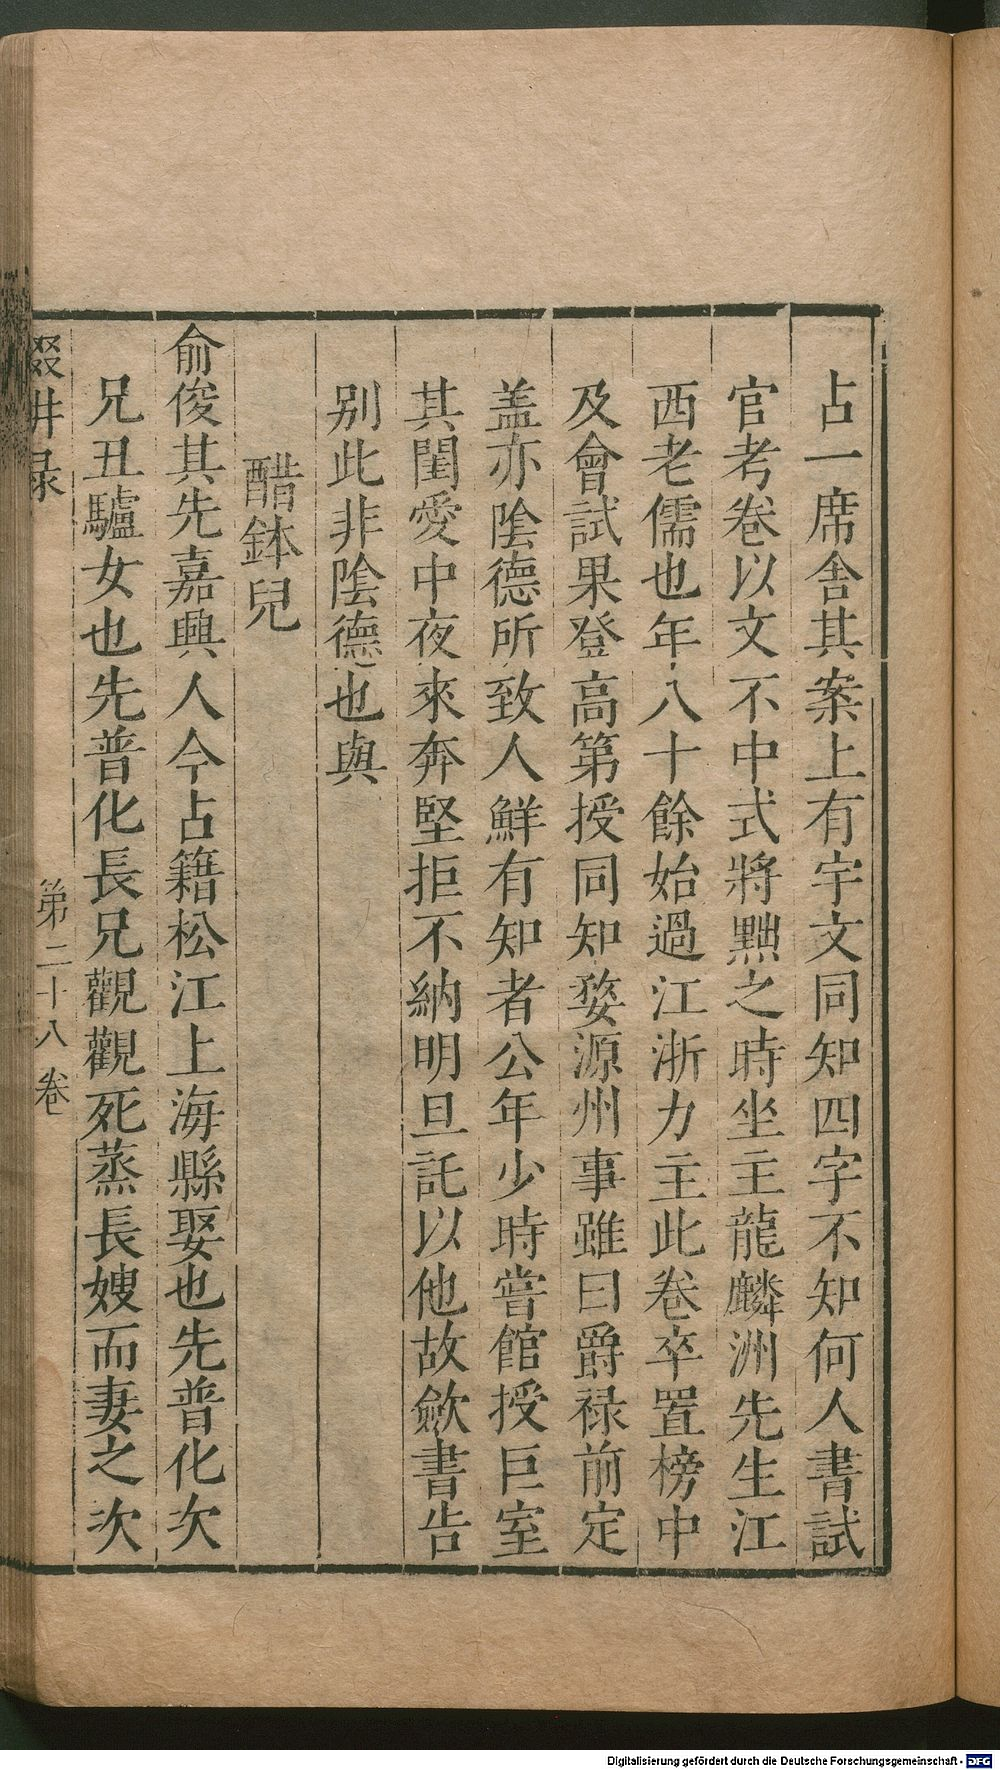 占一席舍其案上有宇文同知四字不知何人書試
官考卷以文不中式將黜之時坐主龍麟洲先生江
西老儒也年八十餘始過江浙力主此卷卒置榜中
及會試果登高第授同知婺源州事雖曰爵禄前定
盖亦陰德所致人鮮有知者公年少時嘗館授巨室
其閨愛中夜來奔堅拒不納明旦託以他故歛書告
别此非陰德也與
醋鉢兒
俞俊其先嘉興人今占籍松江上海縣娶也先普化次
兄丑驢女也先普化長兄觀觀死蒸長嫂而妻之次
輟畊录
第二十八卷
Digitalisierung gefördert durch die Deutsche Forschungsgemeinschaft - DFG